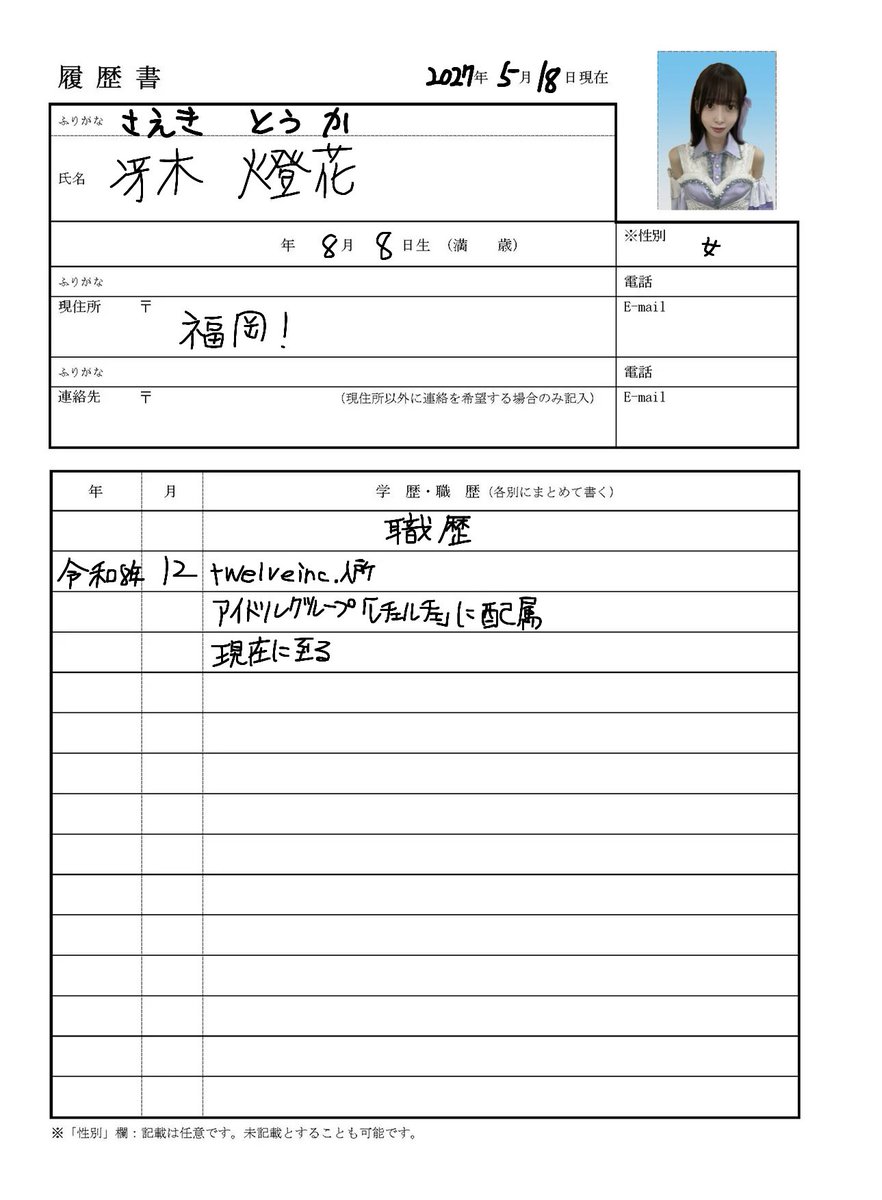 履歴書 2027年 5月 18日現在
ふりがな さえき とうか
氏名 冴木 燈花
年 8月 8日生 (満 歳)
※性別 女
ふりがな
電話
現住所 〒 福岡!
E-mail
ふりがな
電話
連絡先 〒 (現住所以外に連絡を希望する場合のみ記入)
E-mail
年 月 学 歴・職 歴 (各別にまとめて書く)
職歴
令和8年 12 twelveinc.入所
アイドルグループ「レチェルチェ」に配属
現在に至る
※「性別」欄:記載は任意です。未記載とすることも可能です。